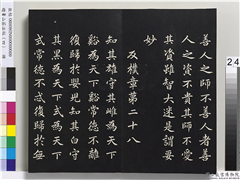 善人之師不善人者善
人之資不貴其師不愛
其資雖智大迷是謂要
妙
反樸章第二十八
知其雄守其雌為天下
谿為天下谿常德不離
復歸於嬰兒知其白守
其黑為天下式為天下
式常德不忒復歸於無
24